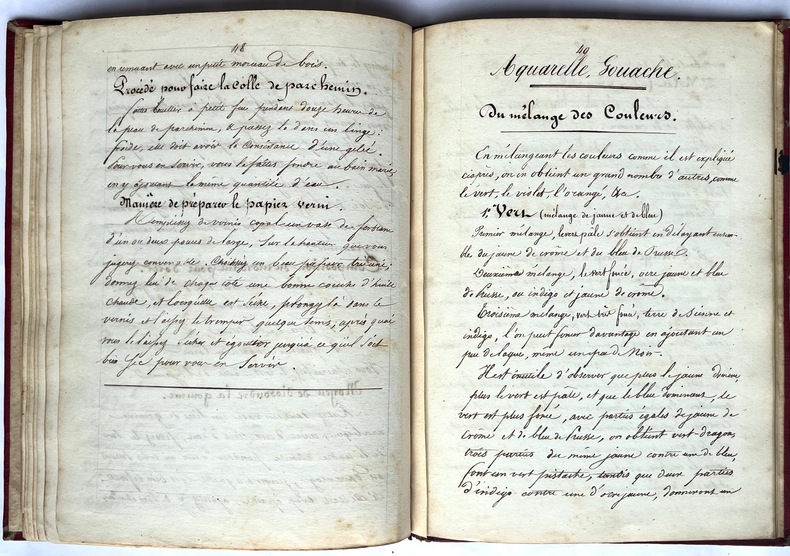 48
en remuant avec un petit morceau de bois.
Procédé pour faire la Colle de parchemin.
faites bouillir à petit feu pendant douze heures de
la peau de parchemin, & passez le dans un linge :
froide, elle doit avoir la Consistance d'une gelée.
Pour vous en servir, vous la faites fondre au bain marie
en y ajoutant la même quantité d'eau.
Manière de préparer le papier verni.
Remplissez de vernis copal un vase de
d'un ou deux pouces de large, sur la hauteur que vous
jugerez convenable. Choisissez un beau papier très uni,
donnez lui de chaque côté une bonne couche d'huile
chaude, et lorsqu'elle est sèche, plongez là dans le
vernis et laissez le tremper quelque tems, après quoi
vous le laissez sécher et égoutter jusqu'à ce qu'il soit
bien sec pour vous en servir.
49
Aquarelle, Gouache.
Du mélange des Couleurs.
En mélangeant les couleurs comme il est expliqué
ciaprès, on en obtient un grand nombre d'autres, comme
le vert, le violet, l'orangé, &c.
1° Vert (mélange de jaune et de bleu)
Premier mélange, le vert pâle s'obtient en délayant ensem-
ble du jaune de crôme et du bleu de Prusse.
Deuxième mélange, le vert foncé, ocre jaune et bleu
de Prusse, ou indigo et jaune de crôme.
Troisième mélange, vert foncé, terre de Sienne et
indigo, l'on peut foncer davantage en ajoutant un
peu de laque, même un peu de Noir.
Il est inutile d'observer que plus le jaune domine,
plus le vert est pâle, et que le bleu dominant, le
vert est plus foncé, avec parties égales de jaune de
Crôme et de bleu de Prusse, on obtient vert-dragon,
trois parties du même jaune contre une de bleu,
font un vert pistache, tandis que deux parties
d'indigo contre une d'ocre jaune, donneront un